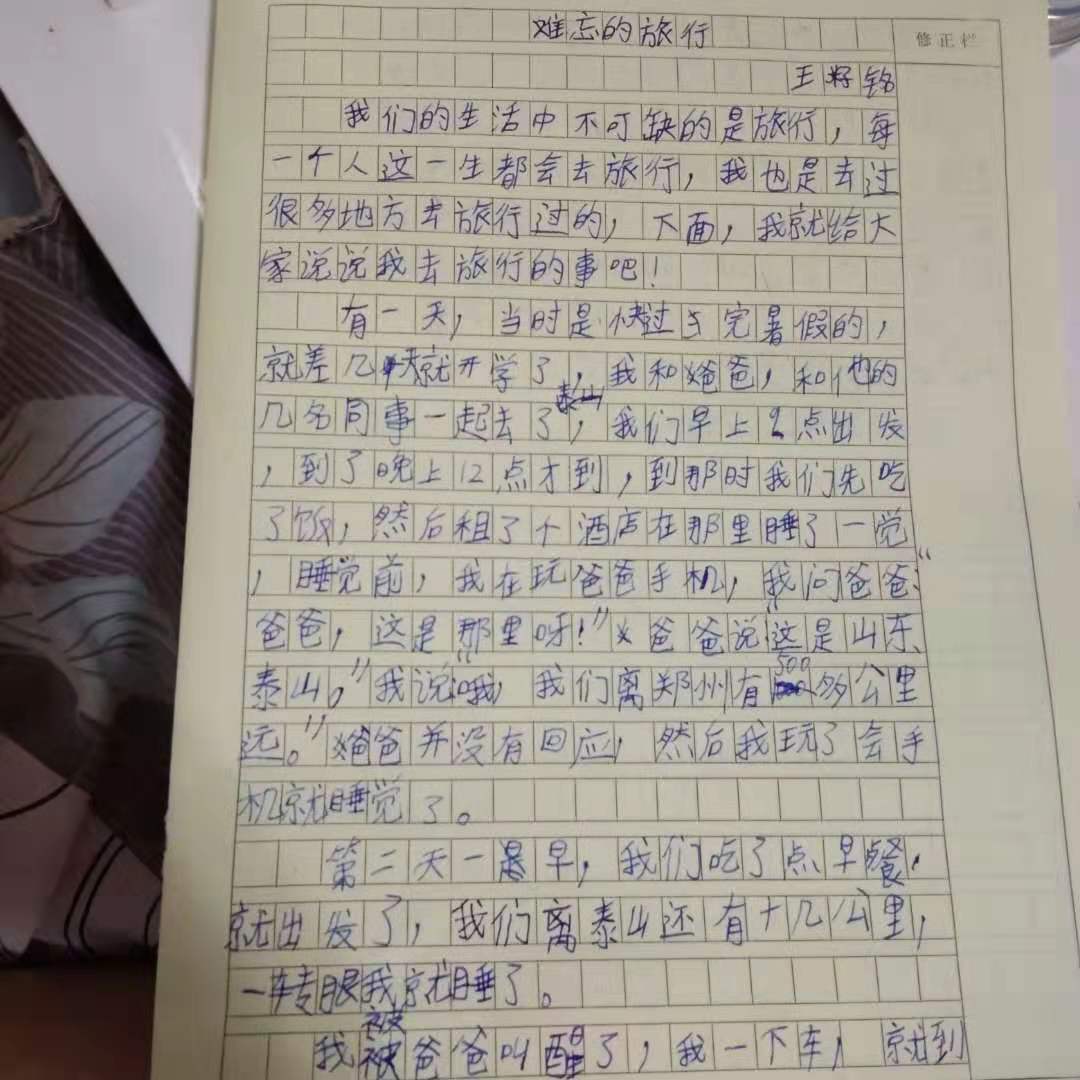 难忘的旅行
修正栏
王好铭
我们的生活中不可缺的是旅行，每
一个人这一生都会去旅行，我也是去过
很多地方去旅行过的，下面，我就给大
家说说我去旅行的事吧！
有一天，当时是快过完暑假的，
就差几天就开学了，我和爸爸，和他的
几名同事一起去了泰山，我们早上2点出发
，到了晚上12点才到，到那时我们先吃
了饭，然后租了个酒店在那里睡了一觉
，睡觉前，我在玩爸爸手机，我问爸爸：“
爸爸，这是那里呀！”爸爸说“这是山东、
泰山。”我说：“哦，我们离郑州有500多公里
远。”爸爸并没有回应，然后我玩了会手
机就睡觉了。
第二天一早，我们吃了点早餐，
就出发了，我们离泰山还有十几公里，
一转眼我就睡了。
我被爸爸叫醒了，我一下车，就到